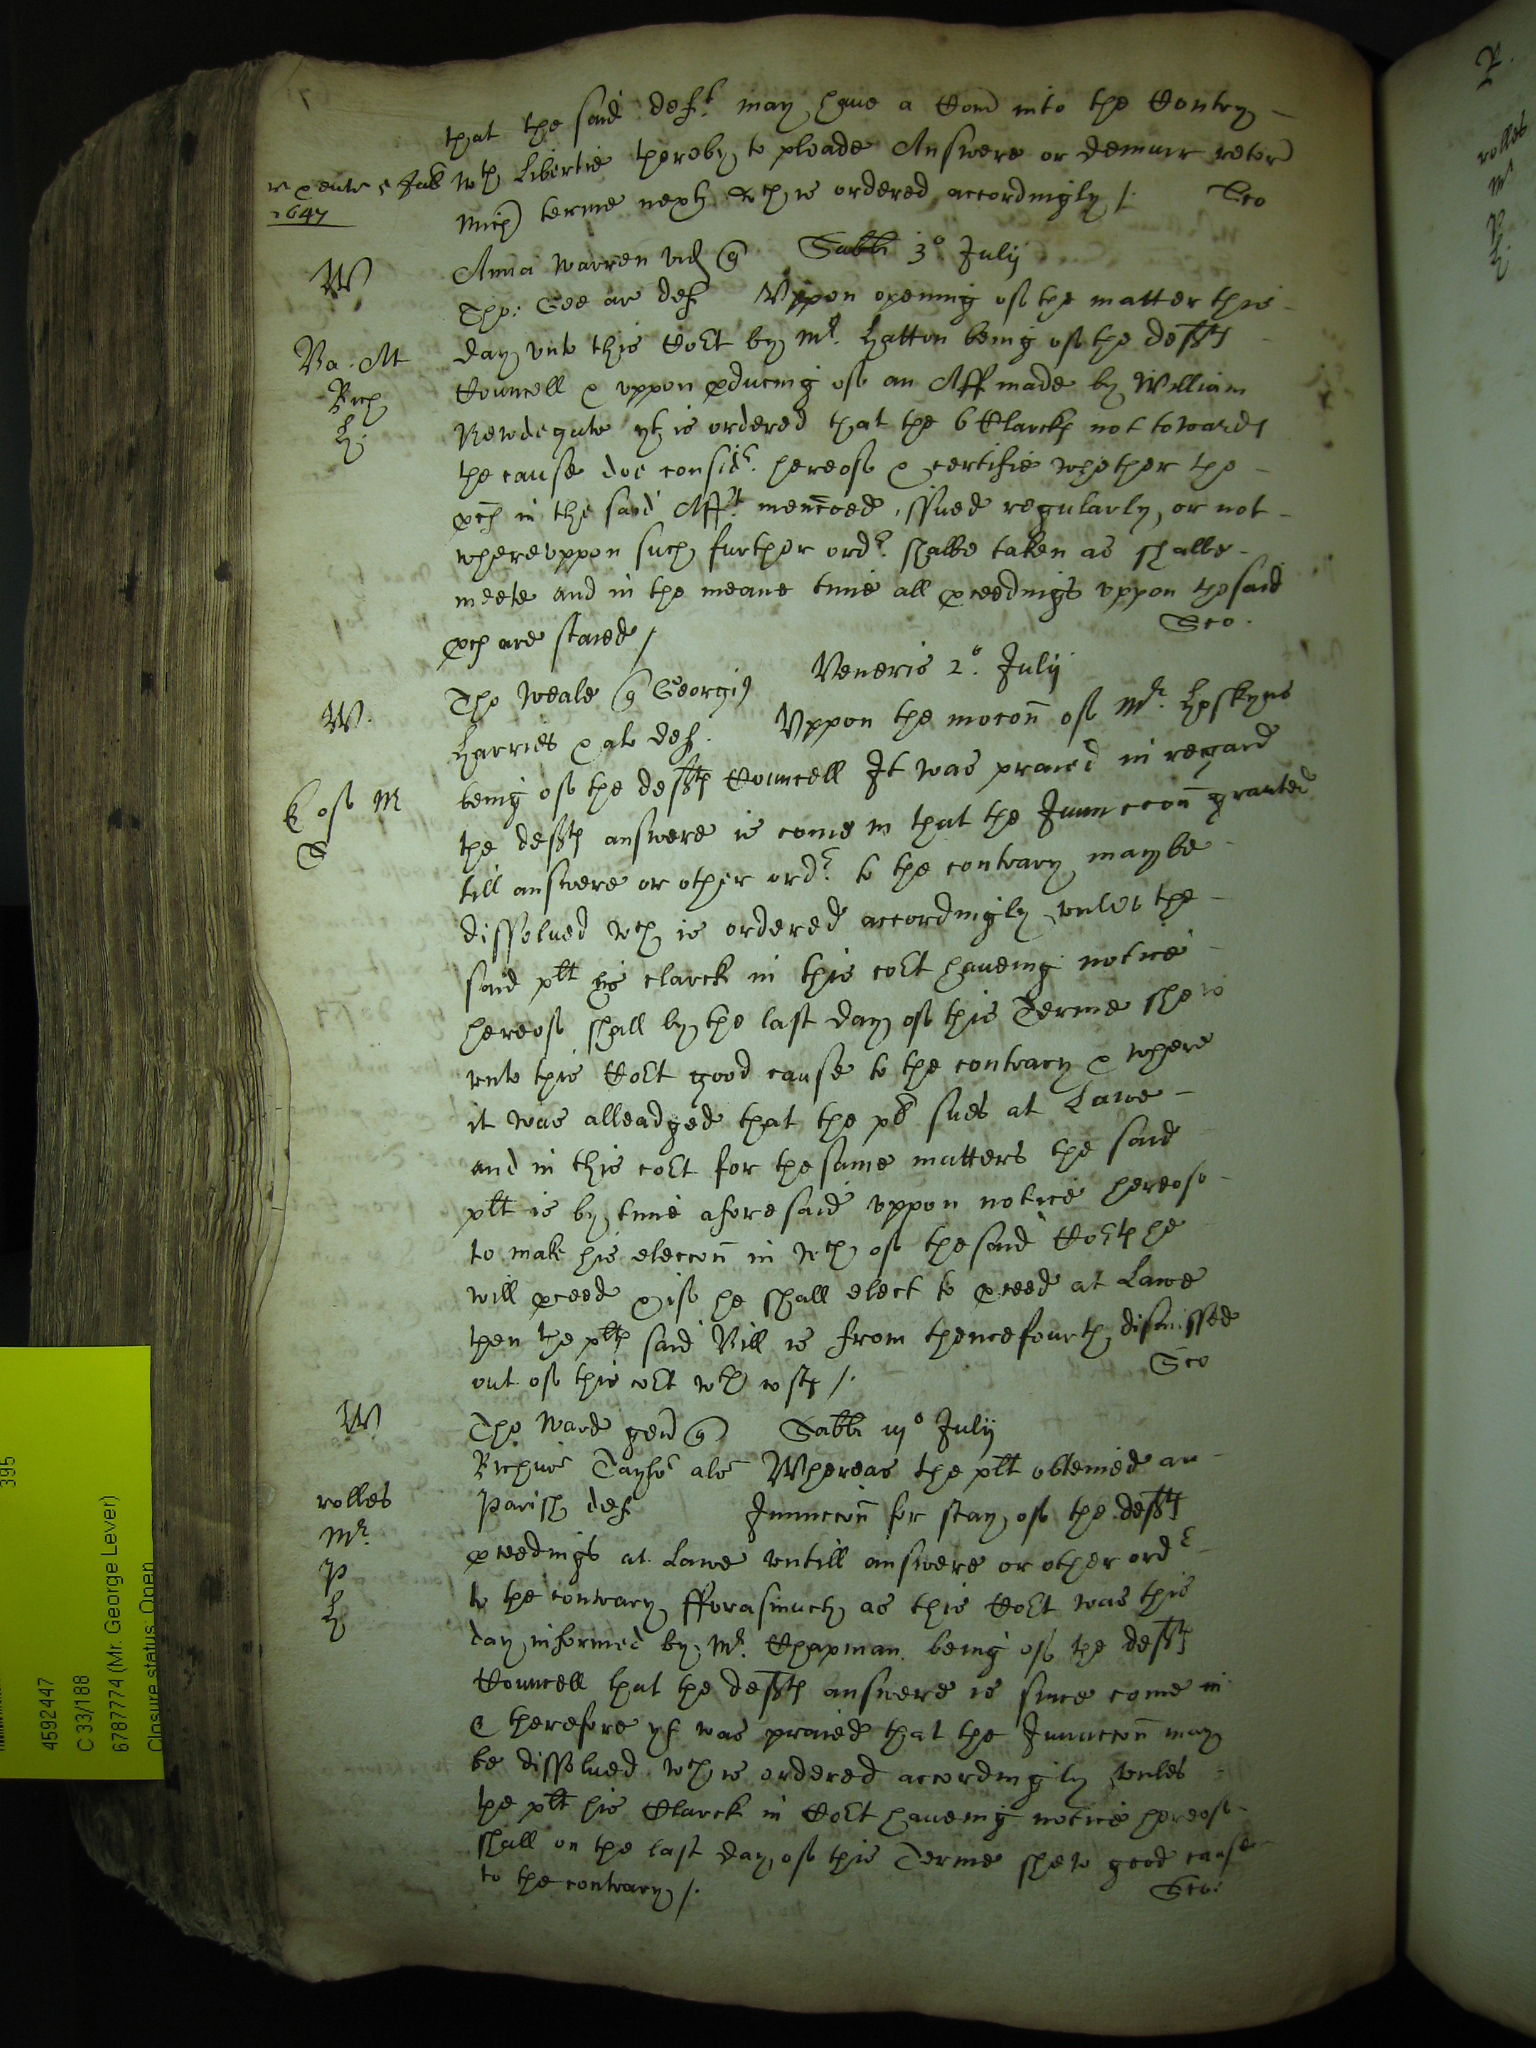 that the said deft. may have a Com̃ into the Contry
wth Libertie thereby to pleade Answere or demurr retor̃
Mich̃ terme next wch is ordered accordingly /.
1647
W
Anna Warren vid Sabbi 3o July
Tho: Gee ar def Vppon opening of the matter this
day vnto this Cort by Mr. Hatton being of the defts
Councell & vppon pducing of an Aff made by William
Newdegate yt is ordered that the 6 Clarcks not towards
the cause doe considr. hereof & certifie whether the
in the said Afft. menc̃oed issued regularly or not
wherevppon such further ordr. shalbe taken as shalbe
meete and in the meane time all pceedings vppon the said
are staied /
Rich
H:
W.
Tho Weale Georgiu Veneris 2o. July
Harries & al def. Vppon the moc̃on of Mr. Hoskyns
being of the defts Councell It was praied in regard
the defts answere is come in that the Iniuncc̃on granted
till answere or other ordr. to the contrary may be
dissolued wch is ordered accordingly vnles the
said plt his clarck in this cort haueing notice
hereof shall by the last day of this Terme shew
vnto this Cort good cause to the contrary & where
it was alleadged that the pl sues at Lawe
and in this cort for the same matters the said
plt is by time aforesaid vppon notice hereof
to make his elecc̃on in wch of the said Corts he
will pceed & if he shall elect to pceed at Lawe
then the plts said Bill is from thencefourth dismissed
out of this cort wth costs /.
W
Tho Ward gen Sabbi iijo July
Taylor als Whereas the plt obteined an
Parish def Iniuncc̃on for stay of the defts
rolles
Mr.
P
H
pceedings at Lawe vntill answere or other ordr
to the contrary fforasmuch as this Cort was this
day informed by Mr. Chapman being of the defts
Councell that the defts answere is since come in
& therefore yt was praied that the Iniuncc̃on may
be dissolued wch is ordered accordingly vnles
the plt his Clarck in Cort haueing notice hereof
shall on the last day of this Terme shew good cause
to the contrary /.
4592447
C 33/188
6787774 (Mr. George Lever)
Closure status: Open
395
rolles